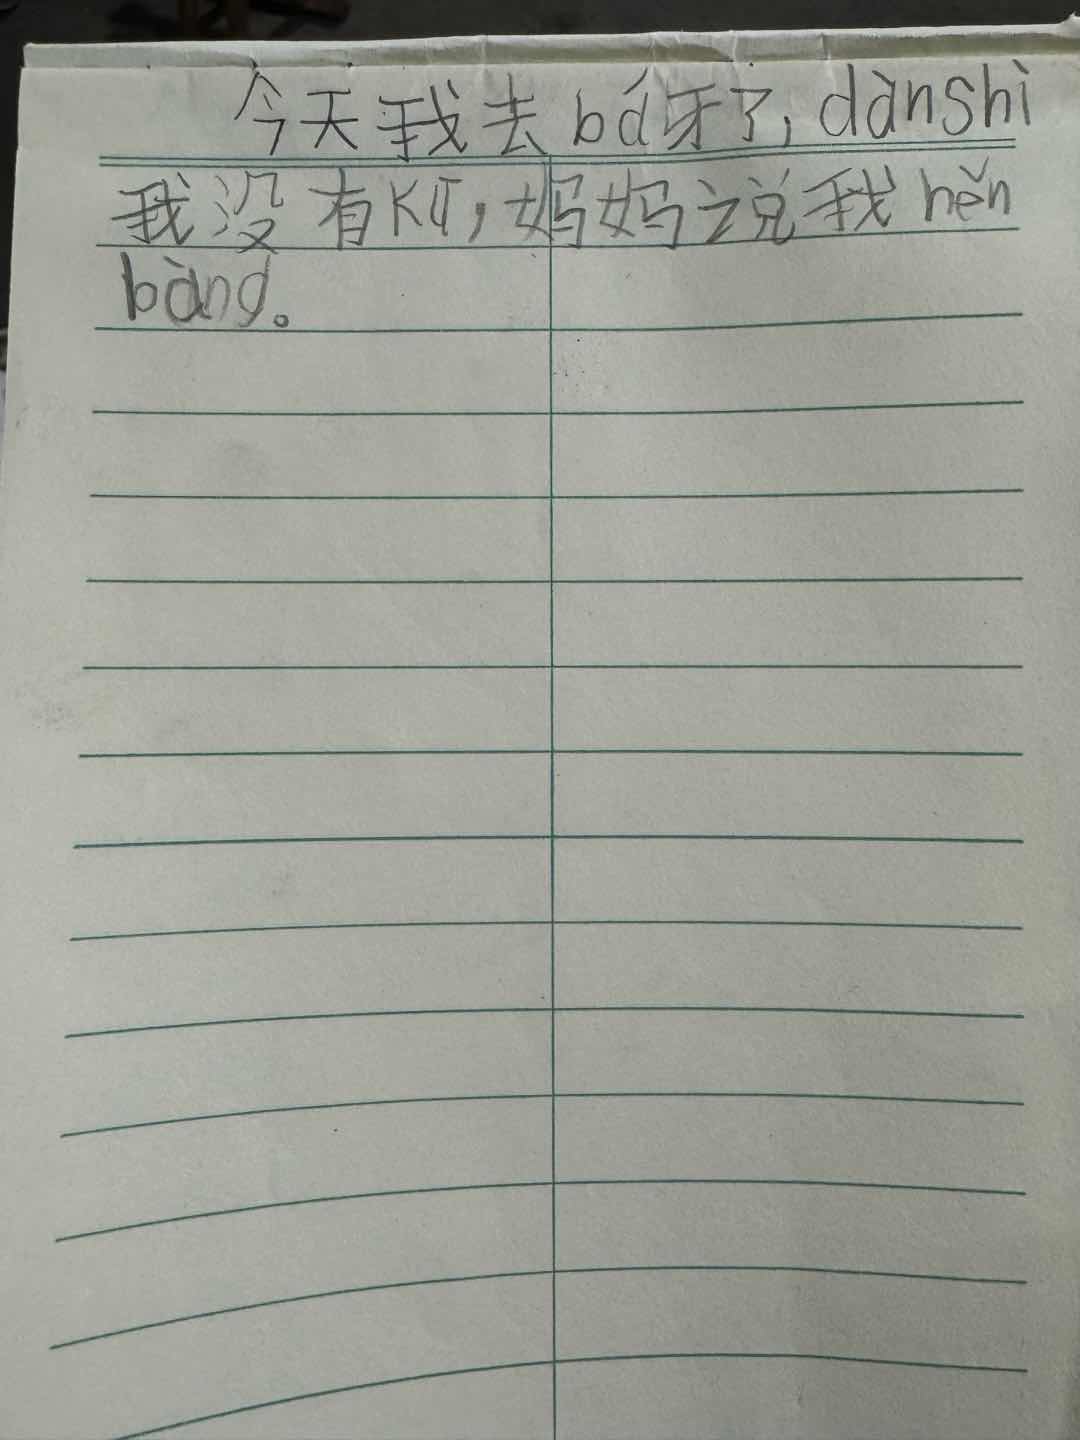 今天我去bá牙了，dànshì
我没有kū，妈妈说我hěn
bàng。